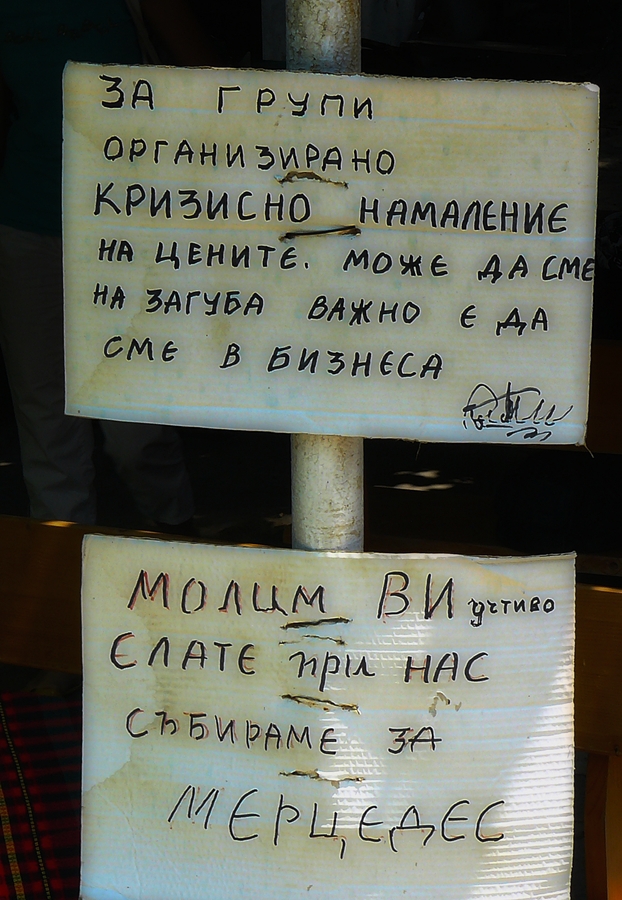 ЗА ГРУПИ
ОРГАНИЗИРАНО
КРИЗИСНО НАМАЛЕНИЕ
НА ЦЕНИТЕ. МОЖЕ ДА СМЕ
НА ЗАГУБА ВАЖНО Е ДА
СМЕ В БИЗНЕСА
МОЛИМ ВИ учтиво
ЕЛАТЕ при НАС
СЪБИРАМЕ ЗА
МЕРЦЕДЕС